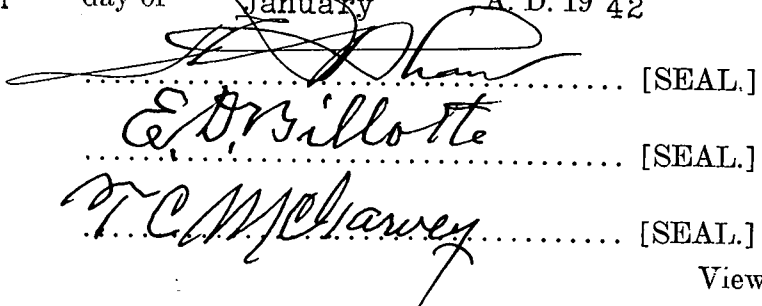 day of January A. D. 19 42
Shaw [SEAL.]
E. D. Billotte [SEAL.]
T. C. McGarvey [SEAL.]
View